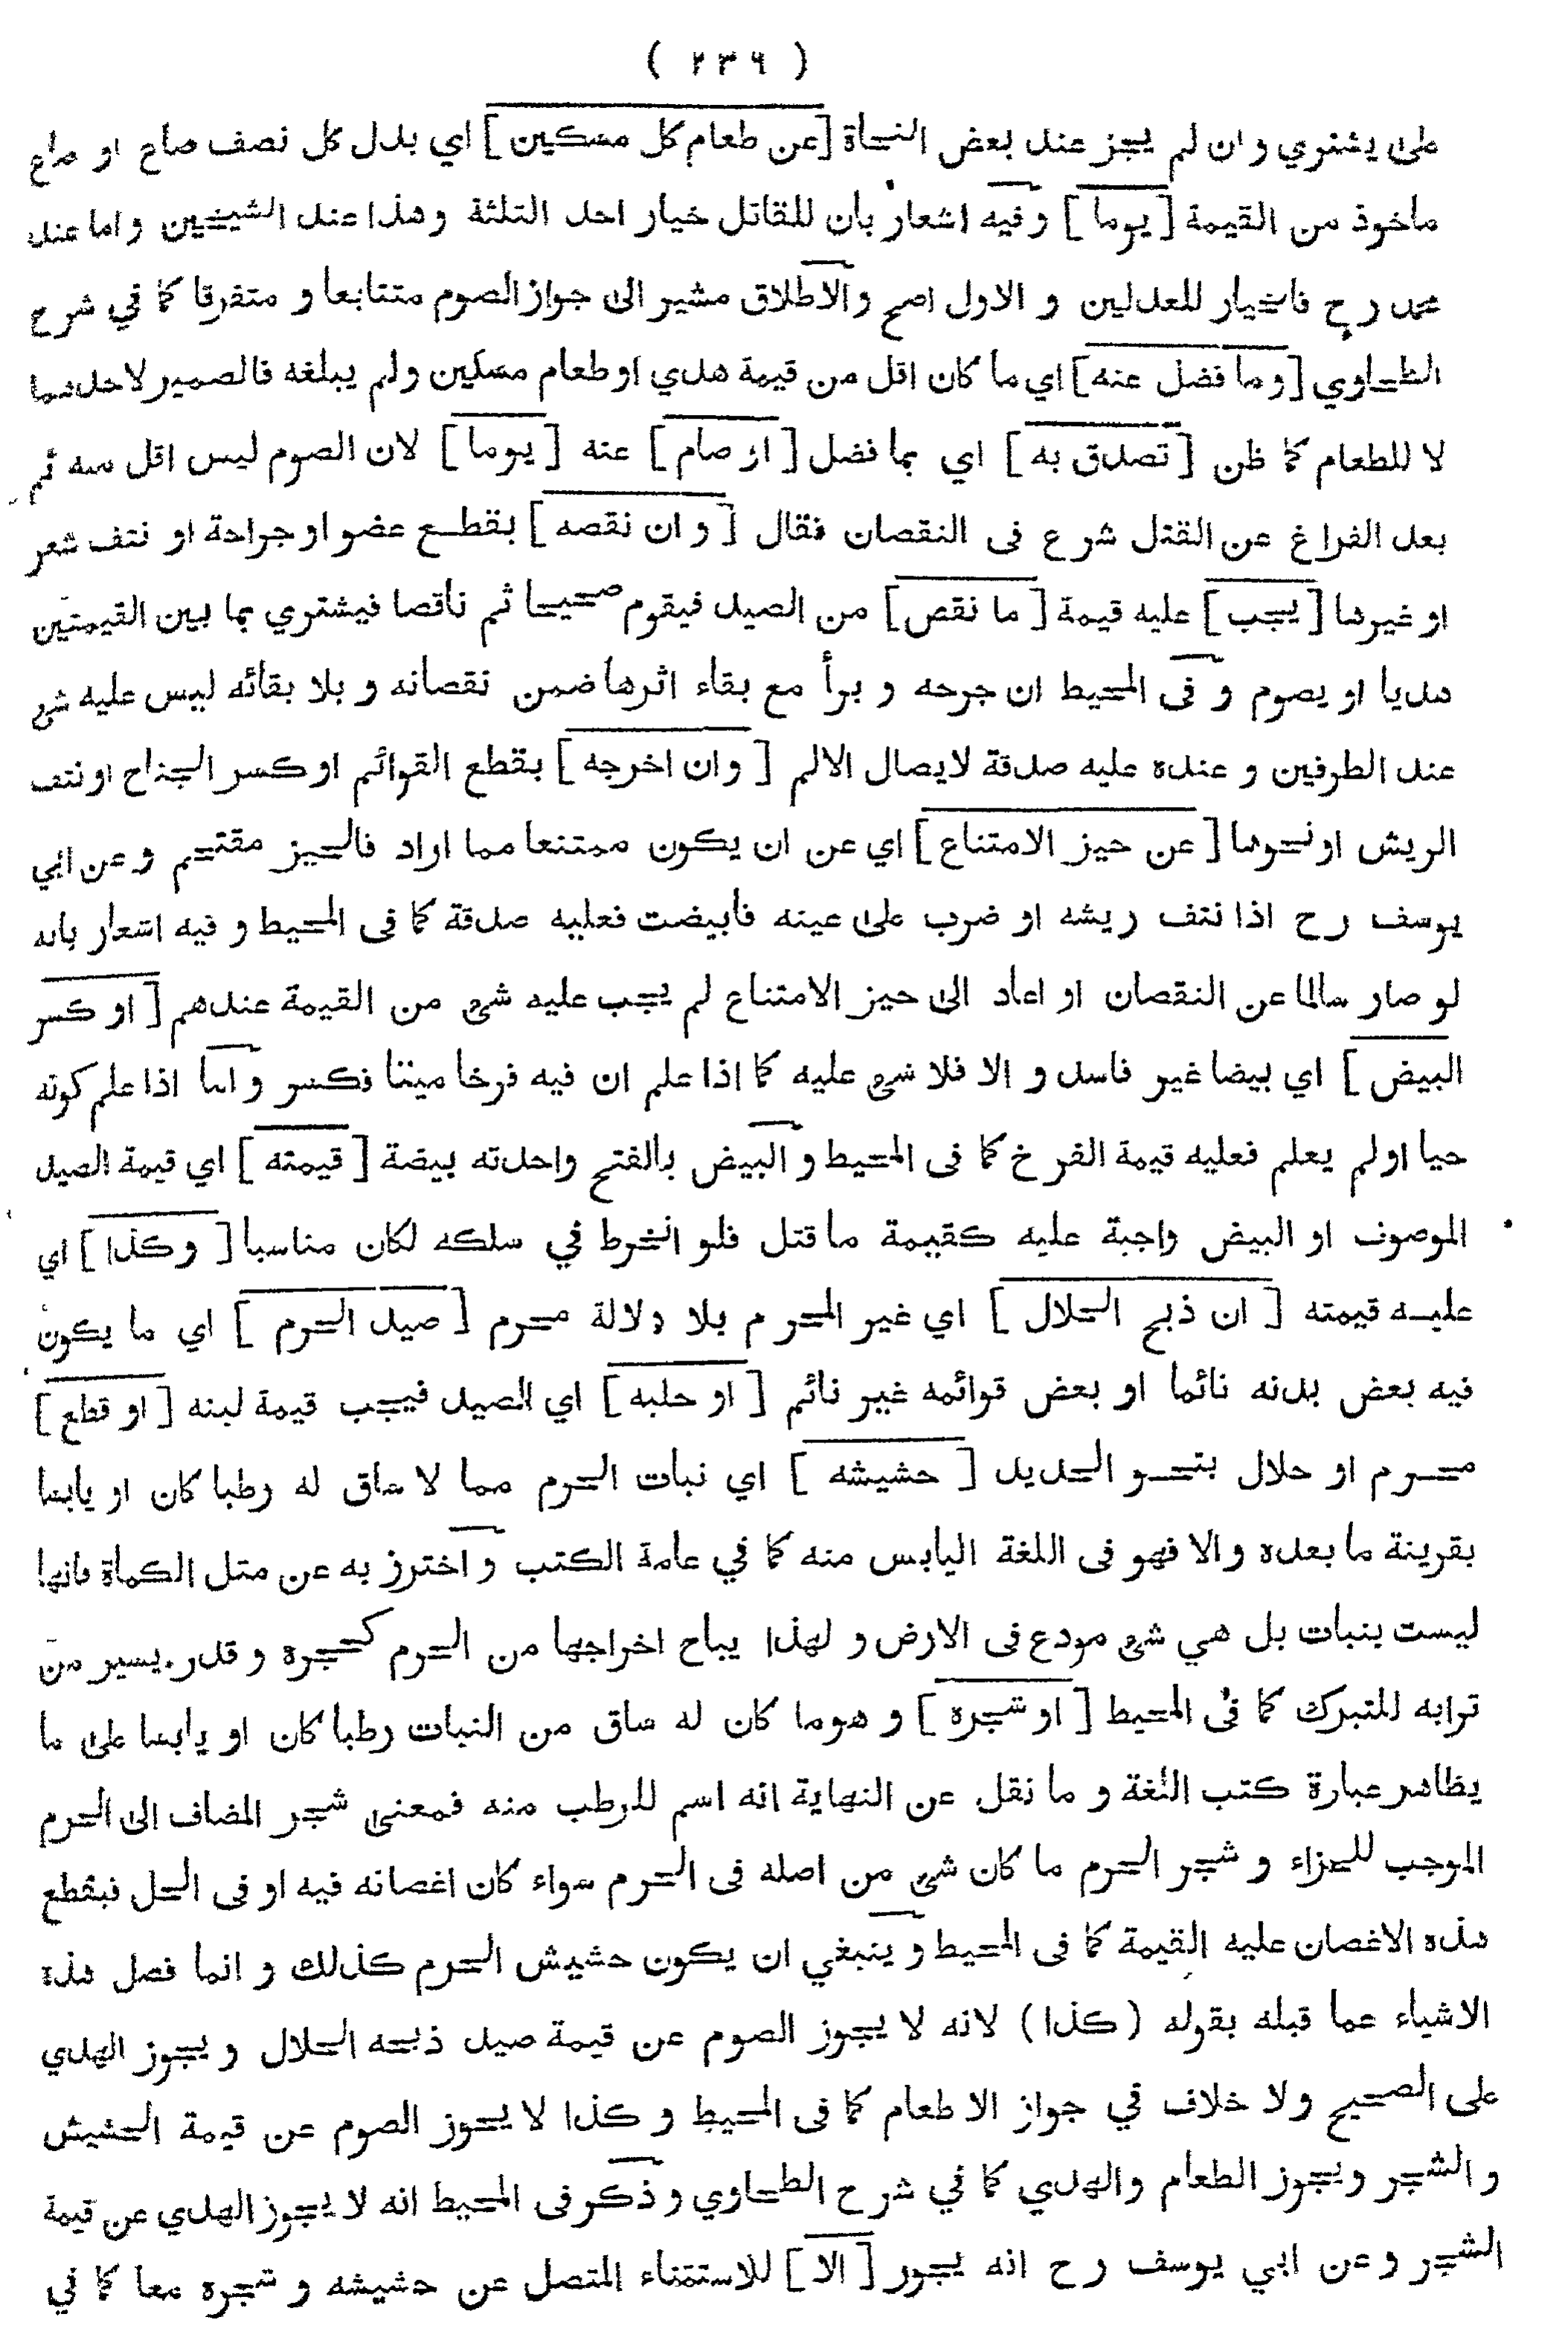 ( ٢٣٦ )
على يشتري وان لم يجز عند بعض النحاة [عن طعام كل مسكين] اي بدل كل نصف صاع او صاع
مأخوذ من القيمة [يوما] وفيه اشعار بان للقاتل خيار احد الثلثة وهذا عند الشيخين واما عند
محمد رح فالخيار للعدلين و الاول اصح والاطلاق مشير الى جواز الصوم متتابعا و متفرقا كما في شرح
الطحاوي [وما فضل عنه] اي ما كان اقل من قيمة هدي او طعام مسكين ولم يبلغه فالضمير لاحدهما
لا للطعام كما ظن [تصدق به] اي بما فضل [او صام] عنه [يوما] لان الصوم ليس اقل منه ثم
بعد الفراغ عن القتل شرع فى النقصان فقال [وان نقصه] بقطع عضو او جراحة او نتف شعر
او غيرها [يجب] عليه قيمة [ما نقص] من الصيد فيقوم صحيحا ثم ناقصا فيشتري بما بين القيمتين
هديا او يصوم و فى المحيط ان جرحه و برأ مع بقاء اثرها ضمن نقصانه و بلا بقائه ليس عليه شئ
عند الطرفين و عنده عليه صدقة لايصال الالم [وان اخرجه] بقطع القوائم او كسر الجناح او نتف
الريش او نحوها [عن حيز الامتناع] اي عن ان يكون ممتنعا مما اراد فالحيز مقتحم وعن ابي
يوسف رح اذا نتف ريشه او ضرب على عينه فأبيضت فعليه صدقة كما فى المحيط و فيه اشعار بانه
لو صار سالما عن النقصان او اعاد الى حيز الامتناع لم يجب عليه شئ من القيمة عندهم [او كسر
البيض] اي بيضا غير فاسد و الا فلا شئ عليه كما اذا علم ان فيه فرخا ميتا فكسر واما اذا علم كونه
حيا اولم يعلم فعليه قيمة الفرخ كما فى المحيط و البيض بالفتح واحدته بيضة [قيمته] اي قيمة الصيد
الموصوف او البيض واجبة عليه كقيمة ما قتل فلو انخرط في سلكه لكان مناسبا [وكذا] اي
عليه قيمته [ان ذبح الحلال] اي غير المحرم بلا دلالة محرم [صيد الحرم] اي ما يكون
فيه بعض بدنه نائما او بعض قوائمه غير نائم [او حلبه] اي الصيد فيجب قيمة لبنه [او قطع]
محرم او حلال بنحو الحديد [حشيشه] اي نبات الحرم مما لا ساق له رطبا كان او يابسا
بقرينة ما بعده والا فهو فى اللغة اليابس منه كما في عامة الكتب و احترز به عن مثل الكماة فانها
ليست بنبات بل هي شئ مودع فى الارض و لهذا يباح اخراجها من الحرم كحجره و قدر يسير من
ترابه للتبرك كما فى المحيط [او شجره] و هو ما كان له ساق من النبات رطبا كان او يابسا على ما
يظاهر عبارة كتب اللغة و ما نقل عن النهاية انه اسم للرطب منه فمعنى شجر المضاف الى الحرم
الموجب للجزاء و شجر الحرم ما كان شئ من اصله فى الحرم سواء كان اغصانه فيه او فى الحل فبقطع
هذه الاغصان عليه القيمة كما فى المحيط و ينبغي ان يكون حشيش الحرم كذلك و انما فصل هذه
الاشياء عما قبله بقوله (كذا) لانه لا يجوز الصوم عن قيمة صيد ذبحه الحلال و يجوز الهدي
على الصحيح ولا خلاف في جواز الاطعام كما فى المحيط و كذا لا يجوز الصوم عن قيمة الحشيش
و الشجر ويجوز الطعام والهدي كما في شرح الطحاوي وذكر فى المحيط انه لا يجوز الهدي عن قيمة
الشجر وعن ابي يوسف رح انه يجوز [الا] للاستثناء المتصل عن حشيشه و شجره معا كما في